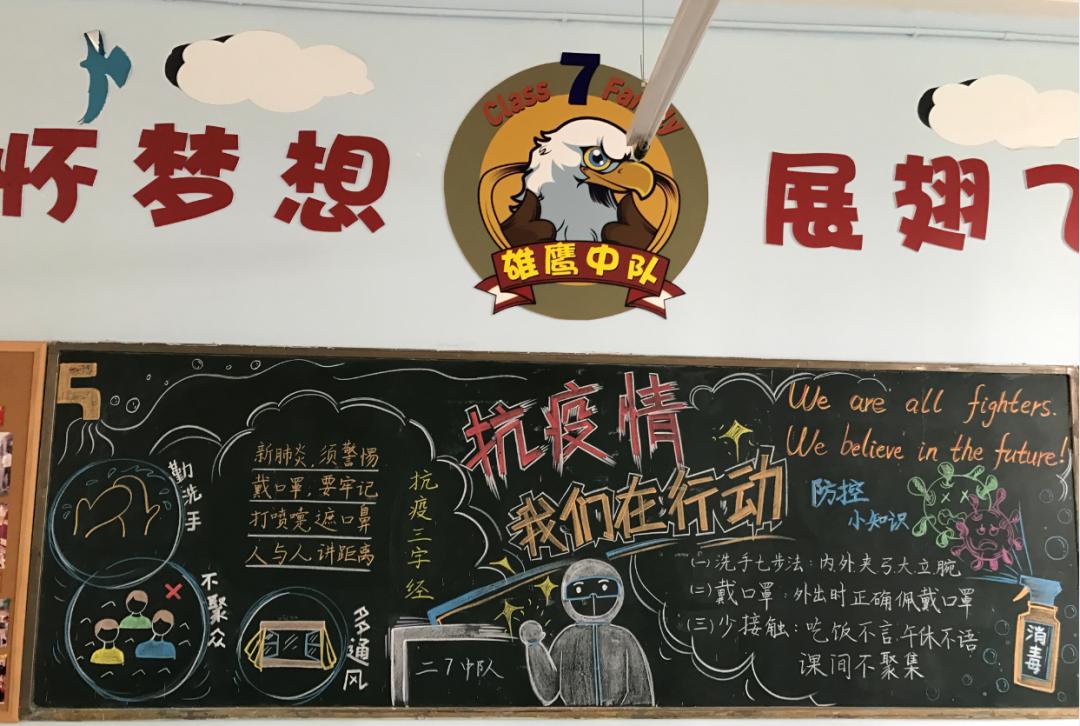 怀梦想
Class 7 Family
雄鹰中队
展翅
抗疫情
我们在行动
We are all fighters.
We believe in the future!
勤洗手
不聚众
多通风
新肺炎,须警惕
戴口罩,要牢记
打喷嚏,遮口鼻
人与人,讲距离
抗疫三字经
二7中队
防控
小知识
(一)洗手七步法:内外夹弓大立腕
(二)戴口罩:外出时正确佩戴口罩
(三)少接触:吃饭不言午休不语
课间不聚集
消毒